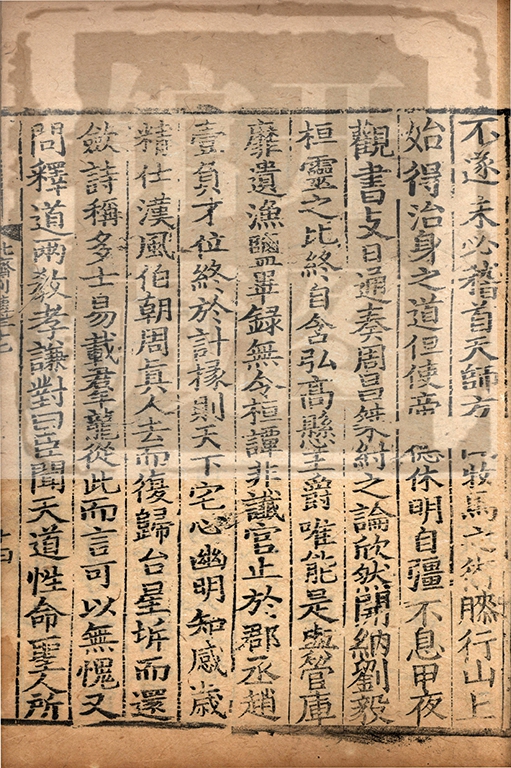 不遂未必稽首天師方 牧馬之術膝行山上
始得治身之道但使帝 德休明自彊不息甲夜
觀書支日通奏周昌桀紂之論欣然開納劉毅
桓靈之比終自含弘高懸王爵唯能是與管庫
靡遺漁鹽畢録無令桓譚非讖官止於郡丞趙
壹負才位終於計掾則天下宅心幽明知感歲
精仕漢風伯朝周真人去而復歸台星坼而還
斂詩稱多士易載羣龍從此而言可以無愧又
問釋道兩教孝謙對曰臣聞天道性命聖人所
北齊列傳三十七
十四